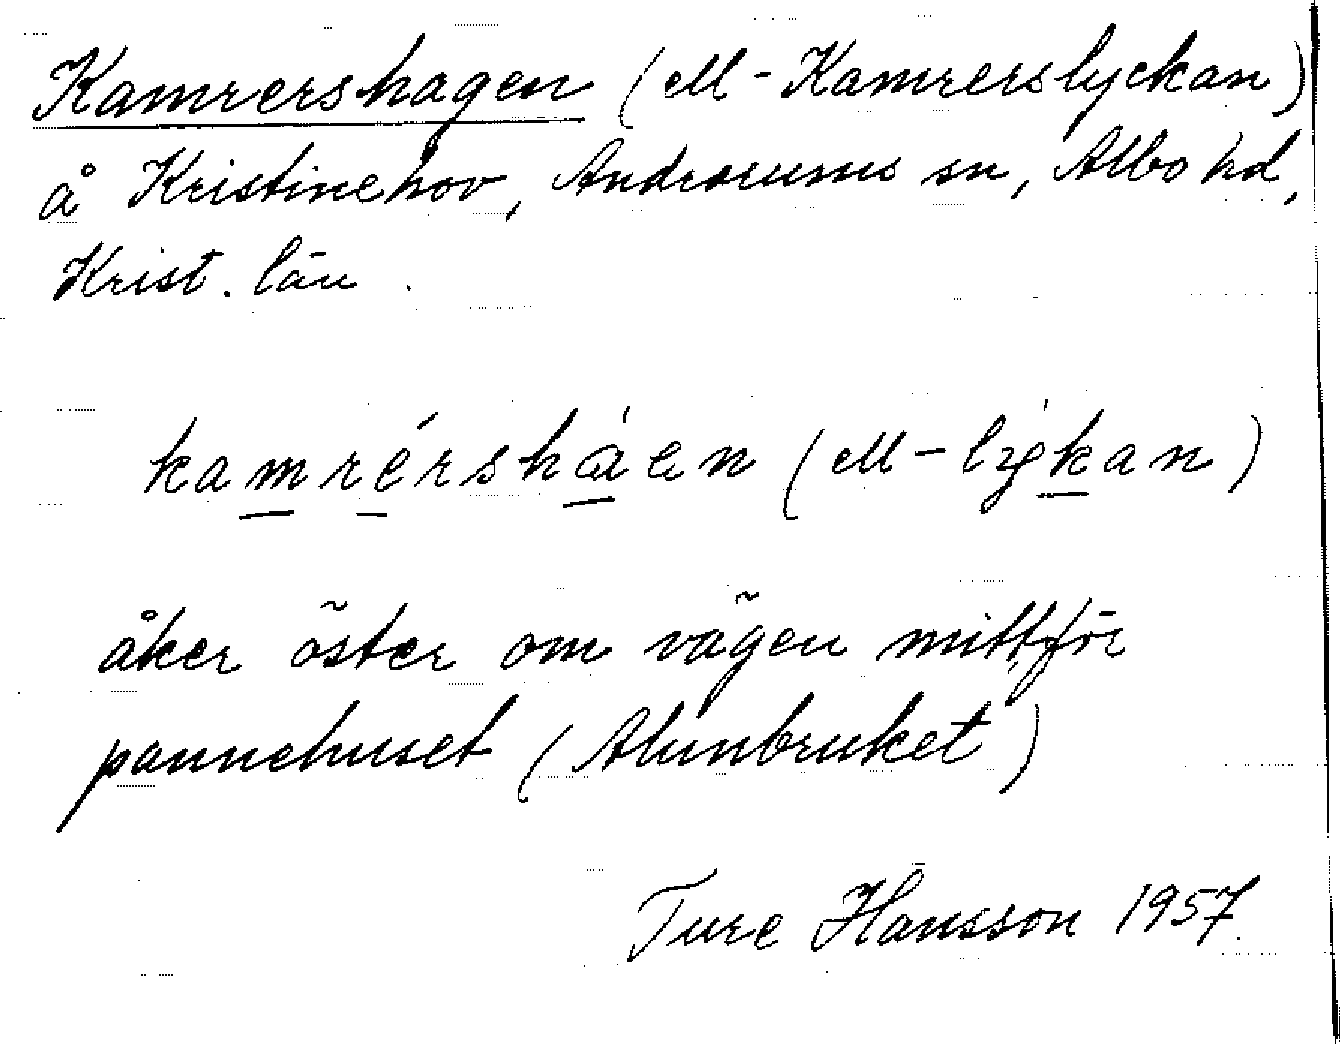 Kamrershagen (M-Kamrerslyckan)
å Kristinehov, Andrarums sn, Albo hd,
Krist. län.
kamrérshàen (M-lykan)
åker öster om vägen mittför
pannehuset (Alunbruket)
Ture Hansson 1957.